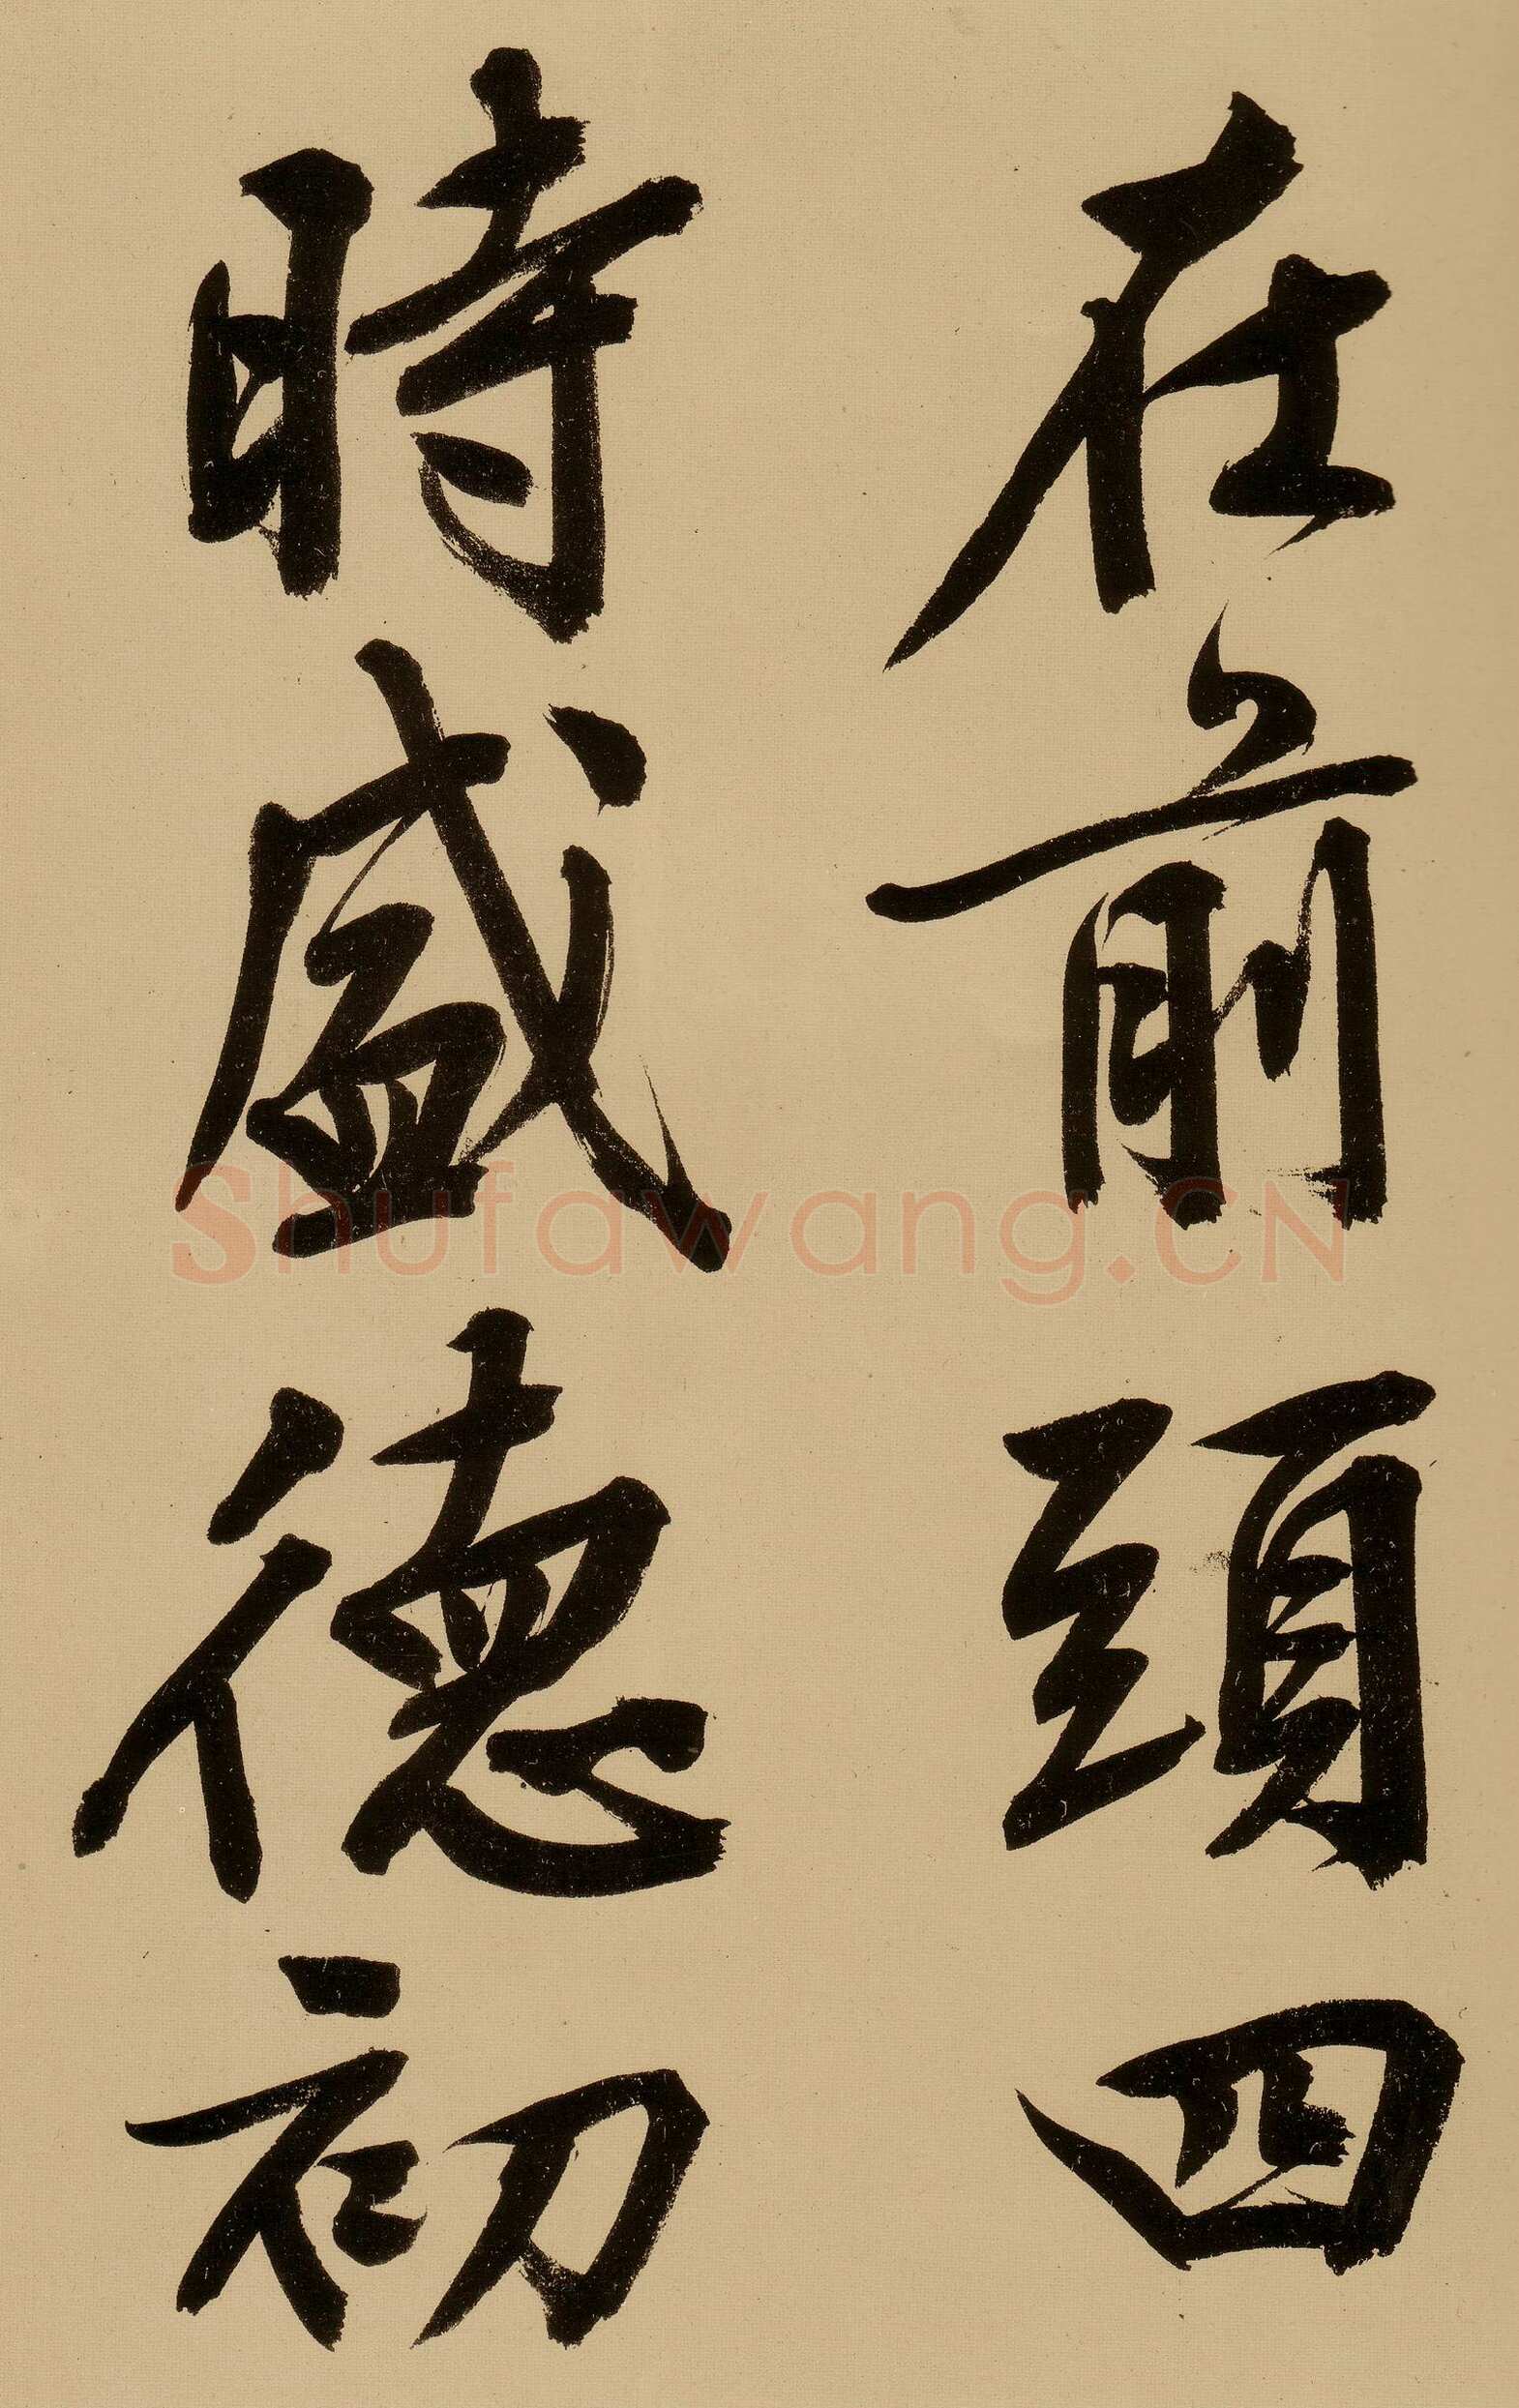 在前頭四
時盛德初
Shufawang.CN